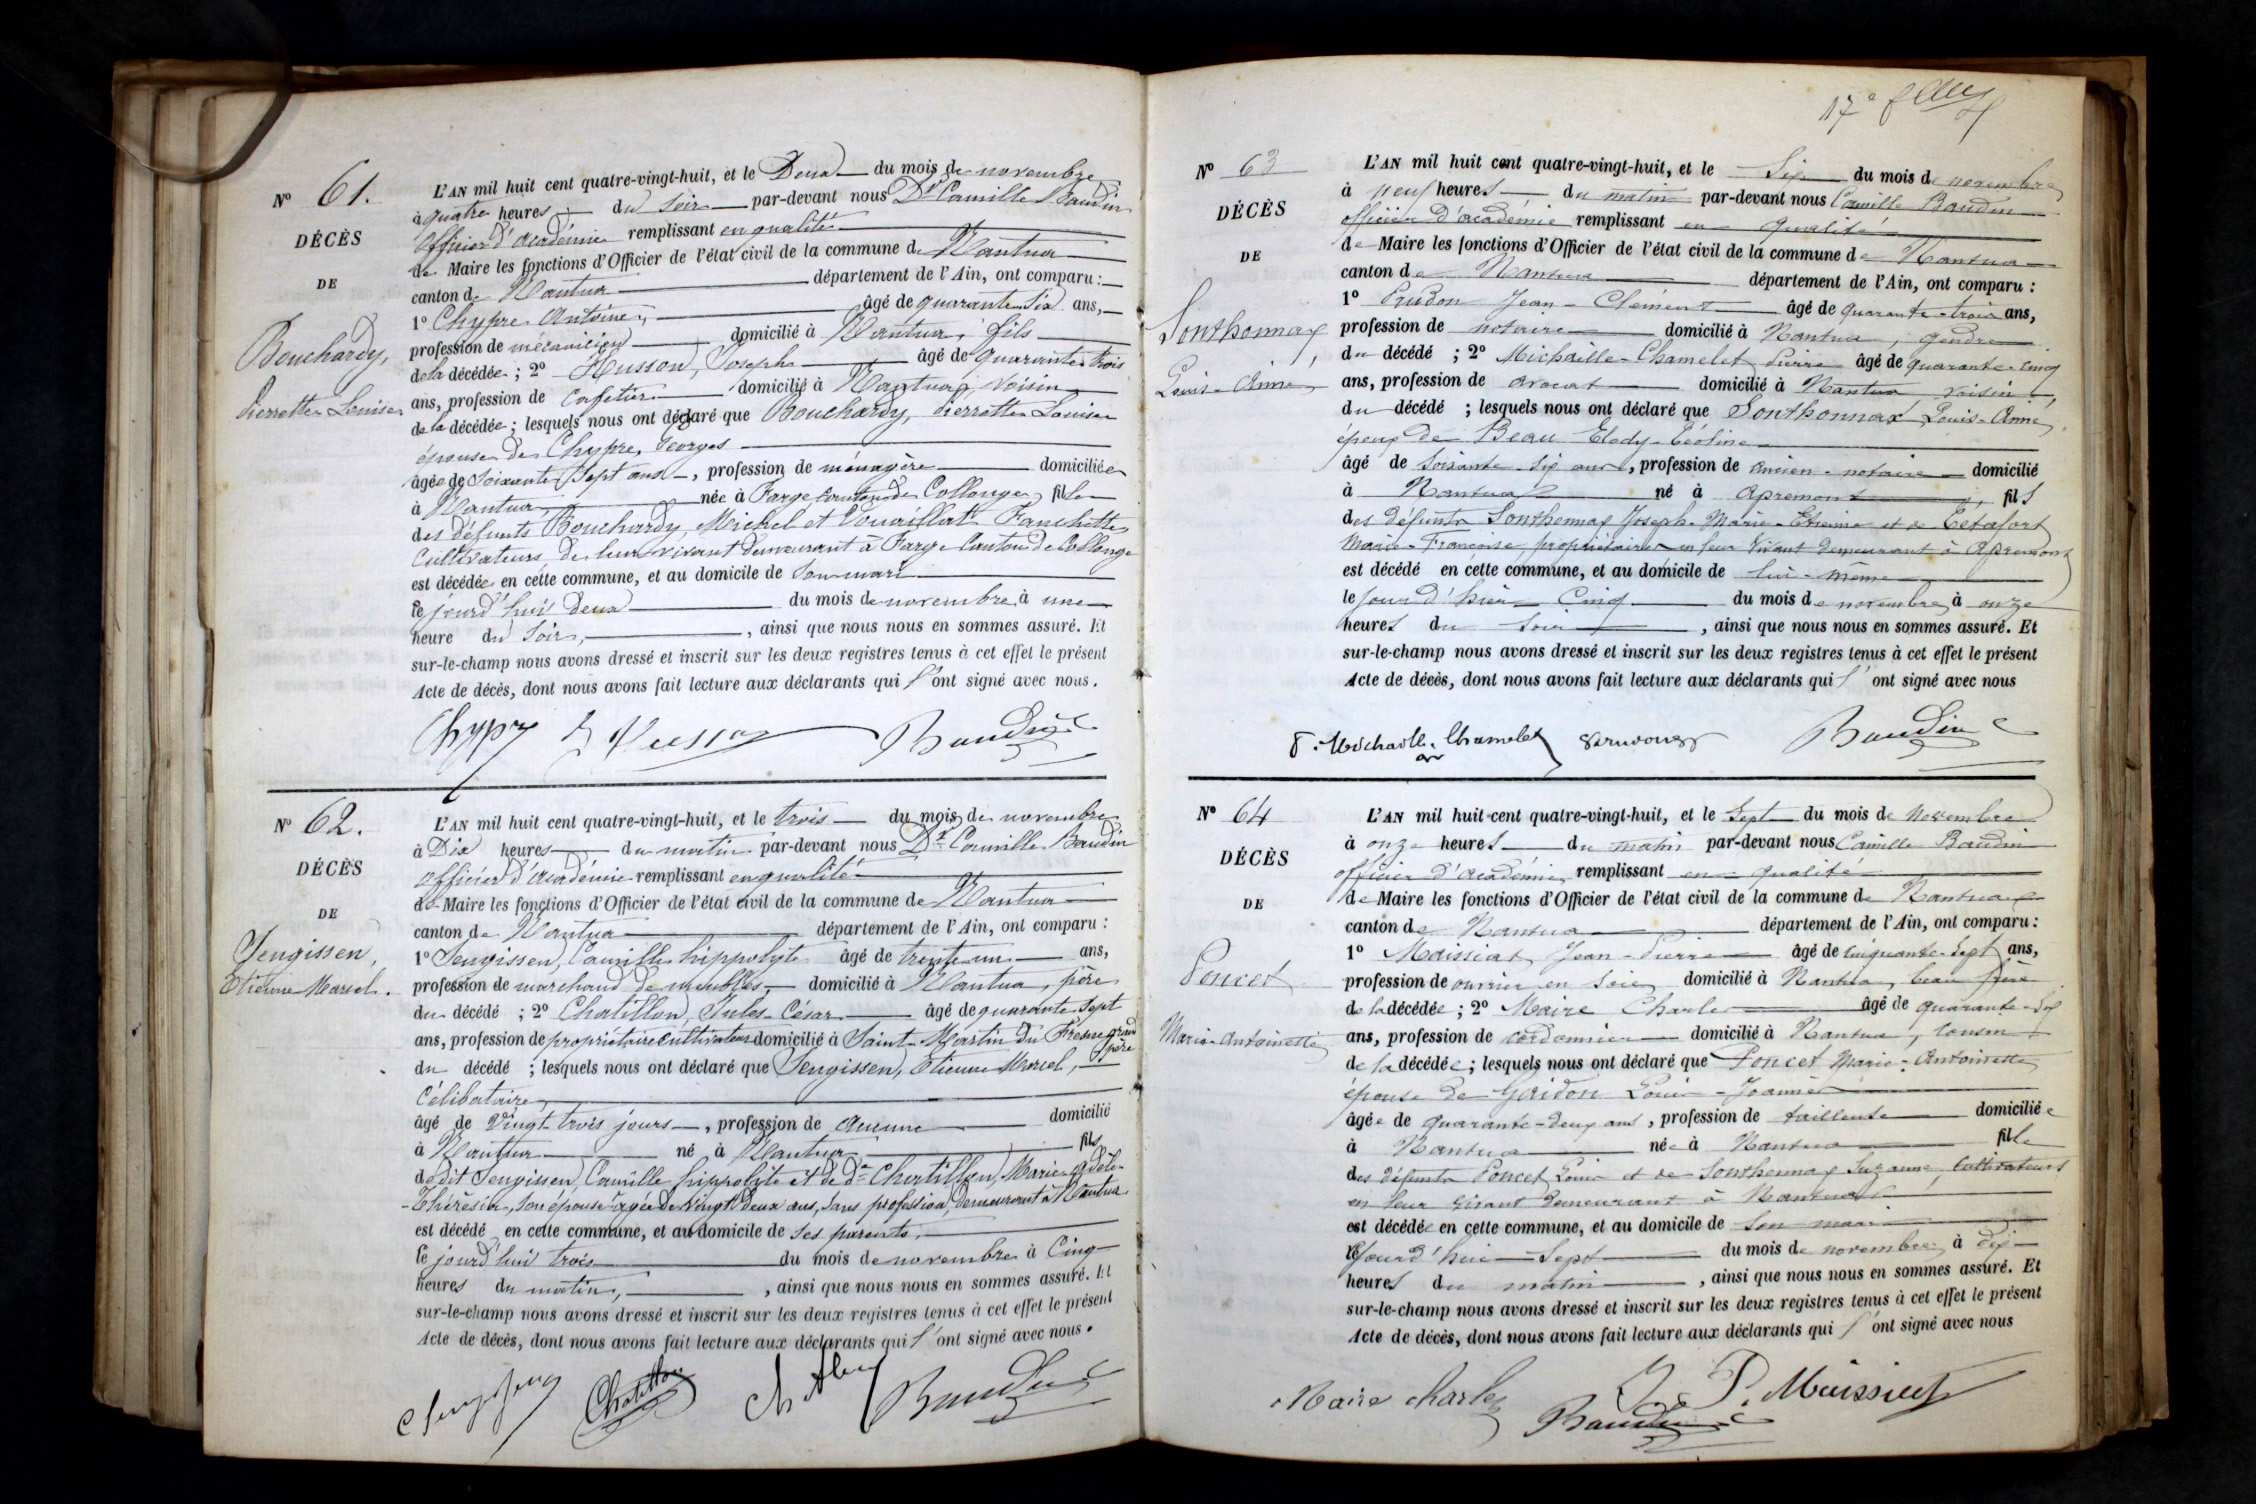 Nº 61.
DÉCÈS
DE
Bouchardy,
Pierrette Louise
L'AN mil huit cent quatre-vingt-huit, et le Deux du mois de novembre
à quatre heures du soir par-devant nous Dr Camille Baudin
officier d'académie remplissant en qualité
de Maire les fonctions d'Officier de l'état civil de la commune de Nantua
canton de Nantua département de l'Ain, ont comparu :
1º Chypre Antoine, âgé de quarante six ans,
profession de mécanicien domicilié à Nantua, fils
de la décédée ; 2º Husson, Joseph âgé de quarante trois
ans, profession de cafetier domicilié à Nantua, voisin
de la décédée ; lesquels nous ont déclaré que Bouchardy, Pierrette Louise
épouse de Chypre, Georges
âgée de soixante sept ans, profession de ménagère domiciliée
à Nantua, née à Farge canton de Collonges, fille
des défunts Bouchardy, Michel et Vuaillat Fanchette
cultivateurs, de leur vivant demeurant à Farge Canton de Collonge
est décédée en cette commune, et au domicile de son mari
le jourd'hui deux du mois de novembre à une
heure du soir, ainsi que nous nous en sommes assuré. Et
sur-le-champ nous avons dressé et inscrit sur les deux registres tenus à cet effet le présent
Acte de décès, dont nous avons fait lecture aux déclarants qui l'ont signé avec nous.
Chypre J Husson Baudin
Nº 62.
DÉCÈS
DE
Sengissen,
Etienne Marcel.
L'AN mil huit cent quatre-vingt-huit, et le trois du mois de novembre
à Dix heures du matin par-devant nous Dr Camille Baudin
officier d'académie remplissant en qualité
de Maire les fonctions d'Officier de l'état civil de la commune de Nantua
canton de Nantua département de l'Ain, ont comparu :
1º Sengissen, Camille hippolyte âgé de trente un ans,
profession de marchand de meubles, domicilié à Nantua, père
du décédé ; 2º Chatillon, Jules César âgé de quarante sept
ans, profession de propriétaire cultivateur domicilié à Saint-Martin du Fresne grand père
du décédé ; lesquels nous ont déclaré que Sengissen, Etienne Marcel,
célibataire,
âgé de vingt trois jours, profession de aucune domicilié
à Nantua né à Nantua fils
de dit Sengissen, Camille hippolyte et de de Chatillon, Marie Adèle
Thérésia, son épouse âgée de vingt deux ans, sans profession, demeurant à Nantua
est décédé en cette commune, et au domicile de ses parents
le jourd'hui trois du mois de novembre à Cinq
heures du matin, ainsi que nous nous en sommes assuré. Et
sur-le-champ nous avons dressé et inscrit sur les deux registres tenus à cet effet le présent
Acte de décès, dont nous avons fait lecture aux déclarants qui l'ont signé avec nous.
Chatillon Baudin
17e
Nº 63
DÉCÈS
DE
Sonthonnax,
Louis-Aimé
L'AN mil huit cent quatre-vingt-huit, et le Six du mois de novembre
à neuf heures du matin par-devant nous Camille Baudin
officier d'académie remplissant en qualité
de Maire les fonctions d'Officier de l'état civil de la commune de Nantua
canton de Nantua département de l'Ain, ont comparu :
1º Prudon Jean-Clément âgé de quarante-trois ans,
profession de notaire domicilié à Nantua, gendre
du décédé ; 2º Michaille-Chamelet Pierre âgé de quarante-cinq
ans, profession de avocat domicilié à Nantua voisin
du décédé ; lesquels nous ont déclaré que Sonthonnax Louis-Aimé
époux de Beau Elody-Léoline
âgé de soixante-six ans, profession de ancien-notaire domicilié
à Nantua né à Apremont, fils
des défunts Sonthonnax Joseph-Marie-Etienne et de
Marie-Françoise, propriétaires en leur vivant demeurant à Apremont
est décédé en cette commune, et au domicile de lui-même
le jour d'hier Cinq du mois de novembre à onze
heures du soir, ainsi que nous nous en sommes assuré. Et
sur-le-champ nous avons dressé et inscrit sur les deux registres tenus à cet effet le présent
Acte de décès, dont nous avons fait lecture aux déclarants qui l'ont signé avec nous
P. Michaille-Chamelet Prudon Baudin
Nº 64
DÉCÈS
DE
Poncet
Marie-Antoinette
L'AN mil huit cent quatre-vingt-huit, et le Sept du mois de Novembre
à onze heures du matin par-devant nous Camille Baudin
officier d'académie remplissant en qualité
de Maire les fonctions d'Officier de l'état civil de la commune de Nantua
canton de Nantua département de l'Ain, ont comparu :
1º Maissiat Jean-Pierre âgé de cinquante-sept ans,
profession de ouvrier en soie domicilié à Nantua, beau frère
de la décédée ; 2º Maire Charles âgé de quarante-six
ans, profession de cordonnier domicilié à Nantua, cousin
de la décédée ; lesquels nous ont déclaré que Poncet Marie-Antoinette
épouse de Gaidon Louis-Joannès
âgée de quarante-deux ans, profession de tailleuse domiciliée
à Nantua née à Nantua fille
des défunts Poncet Louis et de Sonthonnax Suzanne, cultivateurs
en leur vivant demeurant à Nantua
est décédée en cette commune, et au domicile de son mari
le jourd'hui Sept du mois de novembre à dix
heures du matin, ainsi que nous nous en sommes assuré. Et
sur-le-champ nous avons dressé et inscrit sur les deux registres tenus à cet effet le présent
Acte de décès, dont nous avons fait lecture aux déclarants qui l'ont signé avec nous
Maire Charles J. P. Maissiat
Baudin